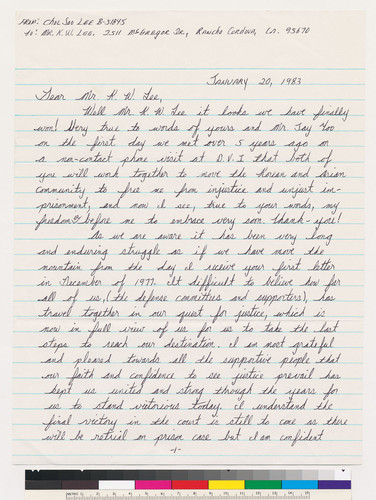 From: Chol Soo Lee B-51895
To: Mr. K.W. Lee. 2511 McGregor Dr., Rancho Cordova, Ca. 95670
January 20, 1983
Dear Mr. K. W. Lee,
Well Mr. K. W. Lee it looks we have finally
won! Very true to words of yours and Mr. Jay Yoo
on the first day we met over 5 years ago on
a non-contact phone visit at D.V.I that both of
you will work together to move the Korean and Asian
community to free me from injustice and unjust im-
prisonment, and now I see, true to your words, my
freedom is before me to embrace very soon. Thank-you!
As we are aware it has been very long
and enduring struggle as if we have move the
mountain from the day I receive your first letter
in December of 1977. It difficult to believe how far
all of us, (the defense committees and supporters), has
travel together in our quest for justice, which is
now in full view of us for us to take the last
steps to reach our destination. I am most grateful
and pleased towards all the supportive people that
our faith and confidence to see justice prevail has
kept us united and strong though the years for
us to stand victorious today. I understand the
final victory in the court is still to come as there
will be retrial on prison case but I am confident
-1-